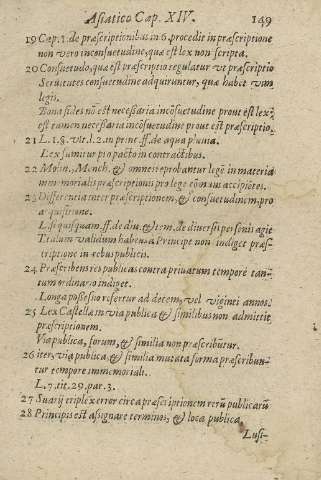 Asiatico Cap. XIV. 149
19 Cap. 1. de præscriptionibus in 6 procedit in præscriptione
non vero in consuetudine, quæ est lex non scripta.
20 Consuetudo, quæ est præscriptio regulatur vt præscriptio
Seruitutes consuetudine adquiruntur, quæ habet vim
legis.
Bona fides nõ est necessaria in cõsuetudine prout est lex:
est tamen necessaria in cõsuetudine prout est præscriptio.
21 L. 1. §. vlt. l. 2. in princ. ff. de aqua pluuia.
Lex sumitur pro pacto in contractibus.
22 Molin, Mench, & omnes reprobantur legẽ in materia
immemorialis præscriptionis pro lege cõmuni accipiẽtes.
23 Differencia inter præscriptionem, & consuetudinem, pro
aquisitione.
L. si quisquam. ff. de diu. & tem. de diuersi personis agit
Titulum validum habens a Principe non indiget præs-
criptione in rebus publicis.
24 Præscribens res publicas contra priuatum tempore tan-
tum ordinario indiget.
Longa possessio refertur ad decem, vel viginti annos.
25 Lex Castellæ in via publica & similibus non admittit
præscriptionem.
Via publica, forum, & similia non præscribuntur.
26 iter, via publica & similia mutata forma præscribun-
tur tempore immemoriali.
L. 7. tit. 29. par. 3.
27 Suarij triplex error circa præscriptionem rerũ publicarũ
28 Principis est assignare terminos, & loca publica.
Lusi-